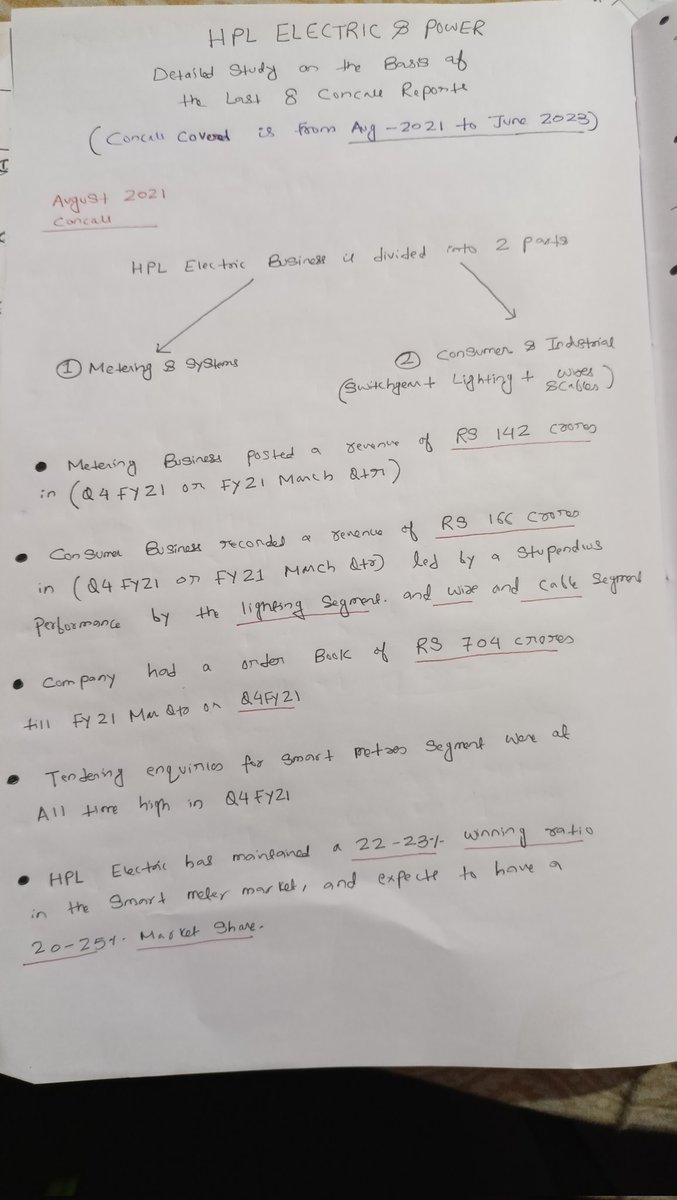 HPL ELECTRIC & POWER
Detailed Study on the Basis of
the Last 8 Concall Reports
(Concall Covered is from Aug-2021 to June 2023)
August 2021
Concall
HPL Electric Business is divided into 2 parts
① Metering & Systems
② Consumer & Industrial
(Switchgear + Lighting + Wires & Cables)
• Metering Business posted a revenue of RS 142 crores
in (Q4 FY21 or FY21 March Qtr)
• Consumer Business recorded a revenue of RS 166 crores
in (Q4 FY21 or FY21 March Qtr) led by a stupendous
Performance by the lighting Segment. and wire and Cable Segment
• Company had a order Book of RS 704 crores
till FY21 Mar Qtr or Q4FY21
• Tendering enquiries for Smart metres Segment were at
All time high in Q4FY21
• HPL Electric has maintained a 22-23% winning ratio
in the Smart meter market, and expects to have a
20-25% Market Share.